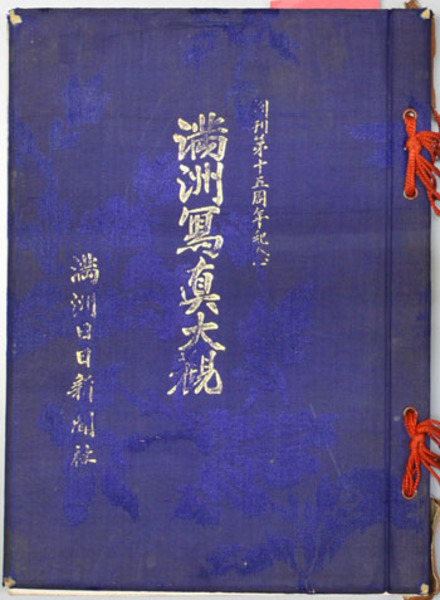 創刊第十五周年紀念
満洲寫真大観
満洲日日新聞社